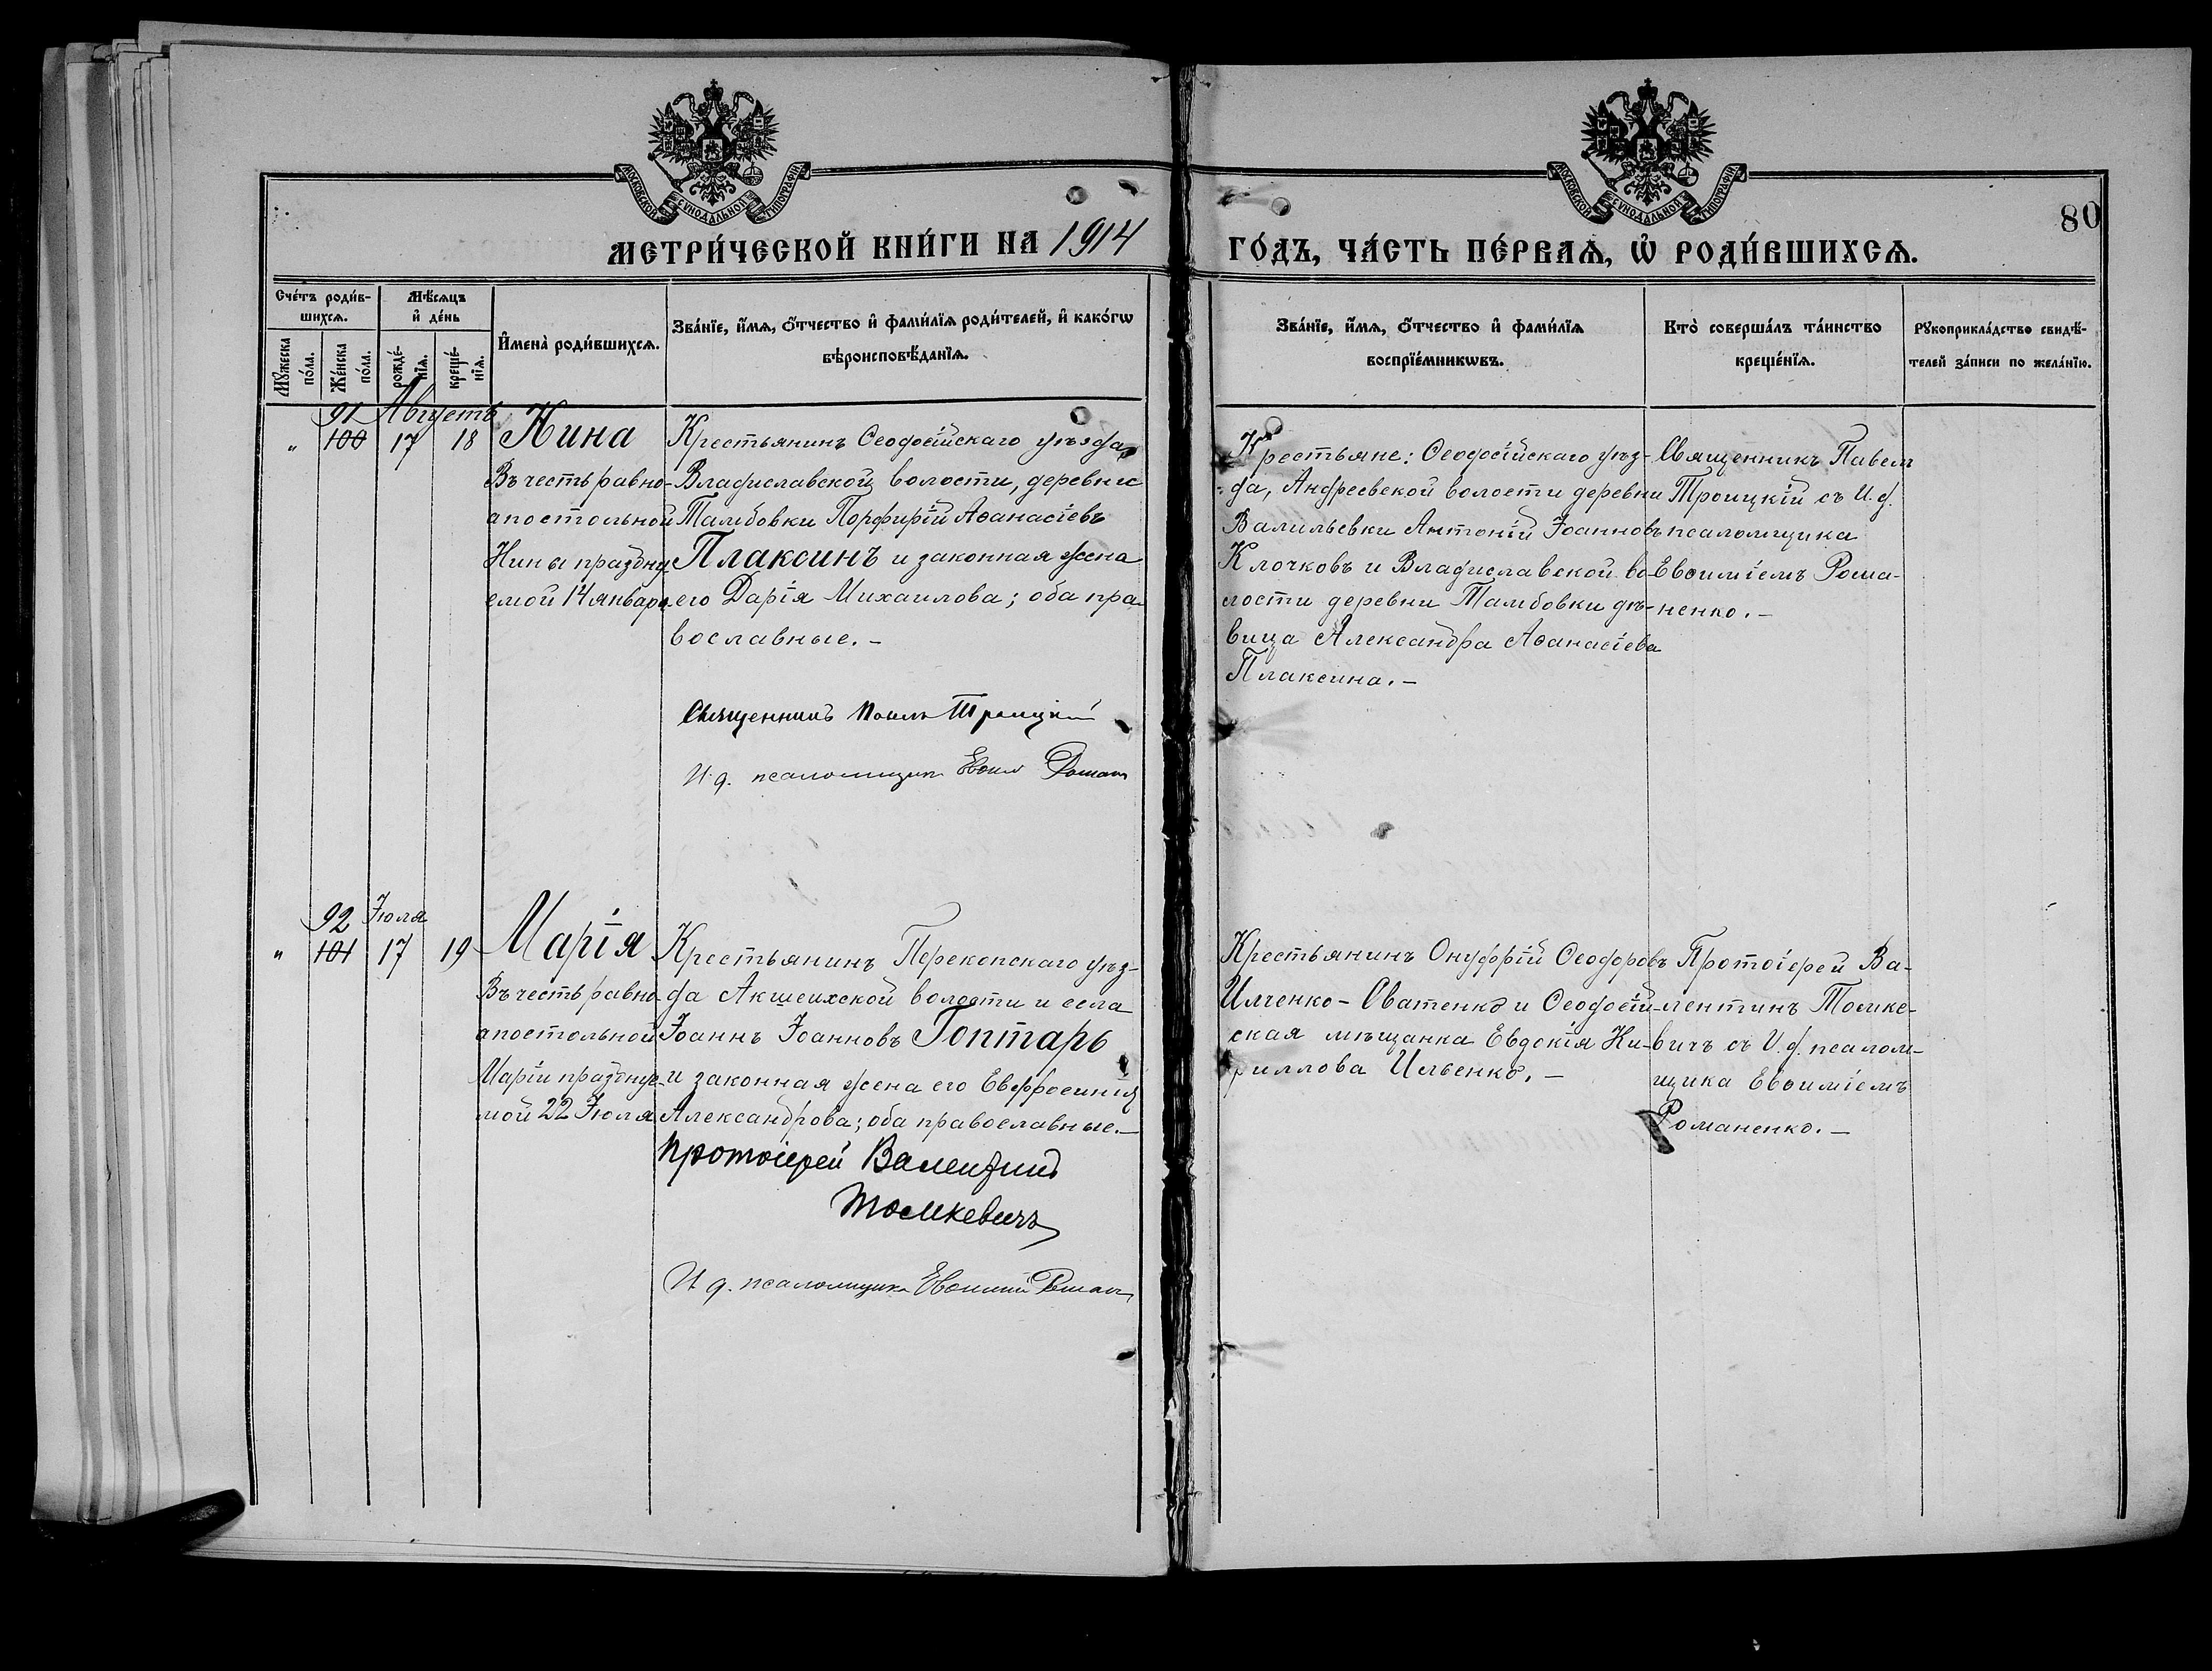 МОСКОВСКОЙ СѴНОДАЛЬНОЙ ТИПОГРАФІИ
МОСКОВСКОЙ СѴНОДАЛЬНОЙ ТИПОГРАФІИ
80
МЕТРИ́ЧЕСКОЙ КНИ́ГИ НА 1914
ГО́ДЪ, ЧА́СТЬ ПЕ́РВАѦ, Ѡ҆ РОДИ́ВШИХСѦ.
Сче́тъ роди́в-
шихсѧ.
Мѣ́сѧцъ
и҆ де́нь
Мꙋ́жеска
по́ла.
Же́нска
по́ла.
рожде́-
нїѧ.
креще́-
нїѧ.
И҆мена̀ роди́вшихсѧ.
Зва́нїе, и҆́мѧ, ѻ҆́тчество и҆ фами́лїѧ роди́телей, и҆ како́гѡ
вѣроисповѣ́данїѧ.
Зва́нїе, и҆́мѧ, ѻ҆́тчество и҆ фами́лїѧ
воспрїе́мникѡвъ.
Кто̀ соверша́лъ та́инство
креще́нїѧ.
Рꙋкоприкла́дство свидѣ́-
телей за́писи по жела́нїю.
91 Августъ
" 100 17 18 Нина
Въ честь равно-
апостольной
Нины праздну
емой 14 января
Крестьянинъ Ѳеодосійскаго уѣзда,
Владиславской волости, деревни
Тамбовки Порфирій Аѳанасіевъ
Плаксинъ и законная жена
его Дарія Михаилова; оба пра-
вославные. –
Священникъ Павелъ Троицкій
И. д. псаломщика Евѳим Роман
Крестьяне: Ѳеодосійскаго уѣз-
да, Андреевской волости деревни
Антоній Іоанновъ
Клочковъ и Владиславской во-
лости деревни Тамбовки дѣ-
вица Александра Аѳанасіева
Плаксина. –
Священникъ Павелъ
Троицкій съ И. д.
псаломщика
Евѳиміемъ Рома-
ненко. –
92 Іюля
" 101 17 19 Марія
Въ честь равно-
апостольной
Маріи празднуе-
мой 22 Іюля
Крестьянинъ Перекопскаго уѣз-
да Акшеихской волости и села
Іоаннъ Іоанновъ Гоптарь
и законная жена его Евфросинія
Александрова; оба православные. –
Протоіерей Валентинъ
Томкевичъ
И д. псаломщика Евѳимій Роман
Крестьянинъ Онуфрій Ѳеодоровъ
Илченко-Сватенко и Ѳеодосій-
ская мѣщанка Евдокія Ки-
риллова Ильенко. –
Протоіерей Ва-
лентинъ Томке-
вичъ съ И. д. псалом-
щика Евѳиміемъ
Романенко. –